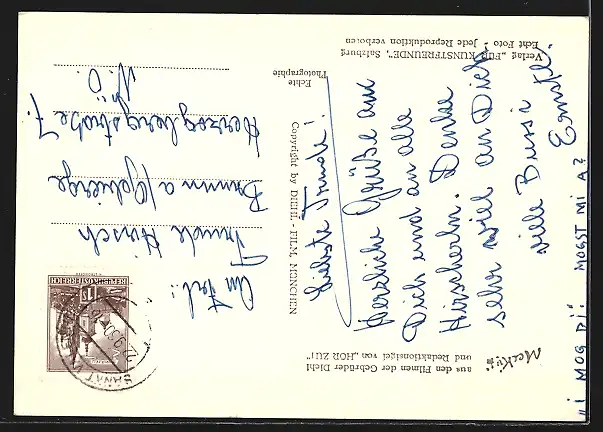 aus den Filmen der Gebrüder Diehl
und Redaktionsigel von „HÖR ZU!"
Mecki
Liebste Trude!
Herzliche Grüße an
Dich und an alle
Hirscherln. Denke
sehr viel an Dich
viele Bussi
Ernstl.
„I MOG DI" MOGST MI A?
Verlag „FÜR KUNSTFREUNDE", Salzburg
Echt Foto - Jede Reproduktion verboten
Echte
Photographie
Copyright by DIEHL-FILM, MÜNCHEN
REPUBLIK ÖSTERREICH
SANKT
An Frl.:
Trude Hirsch
Brunn a/Gebirge
Herzogbergstraße 7.
N.Ö.